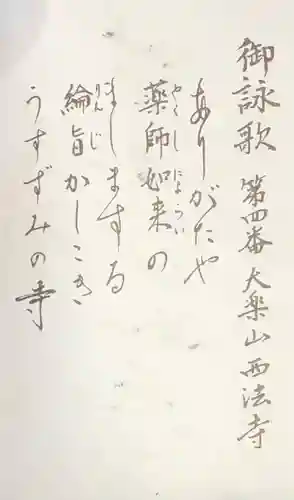 御詠歌 第四番 大楽山西法寺
ありがたや
薬師如来の
ましますする
綸旨かしこき
うすずみの寺